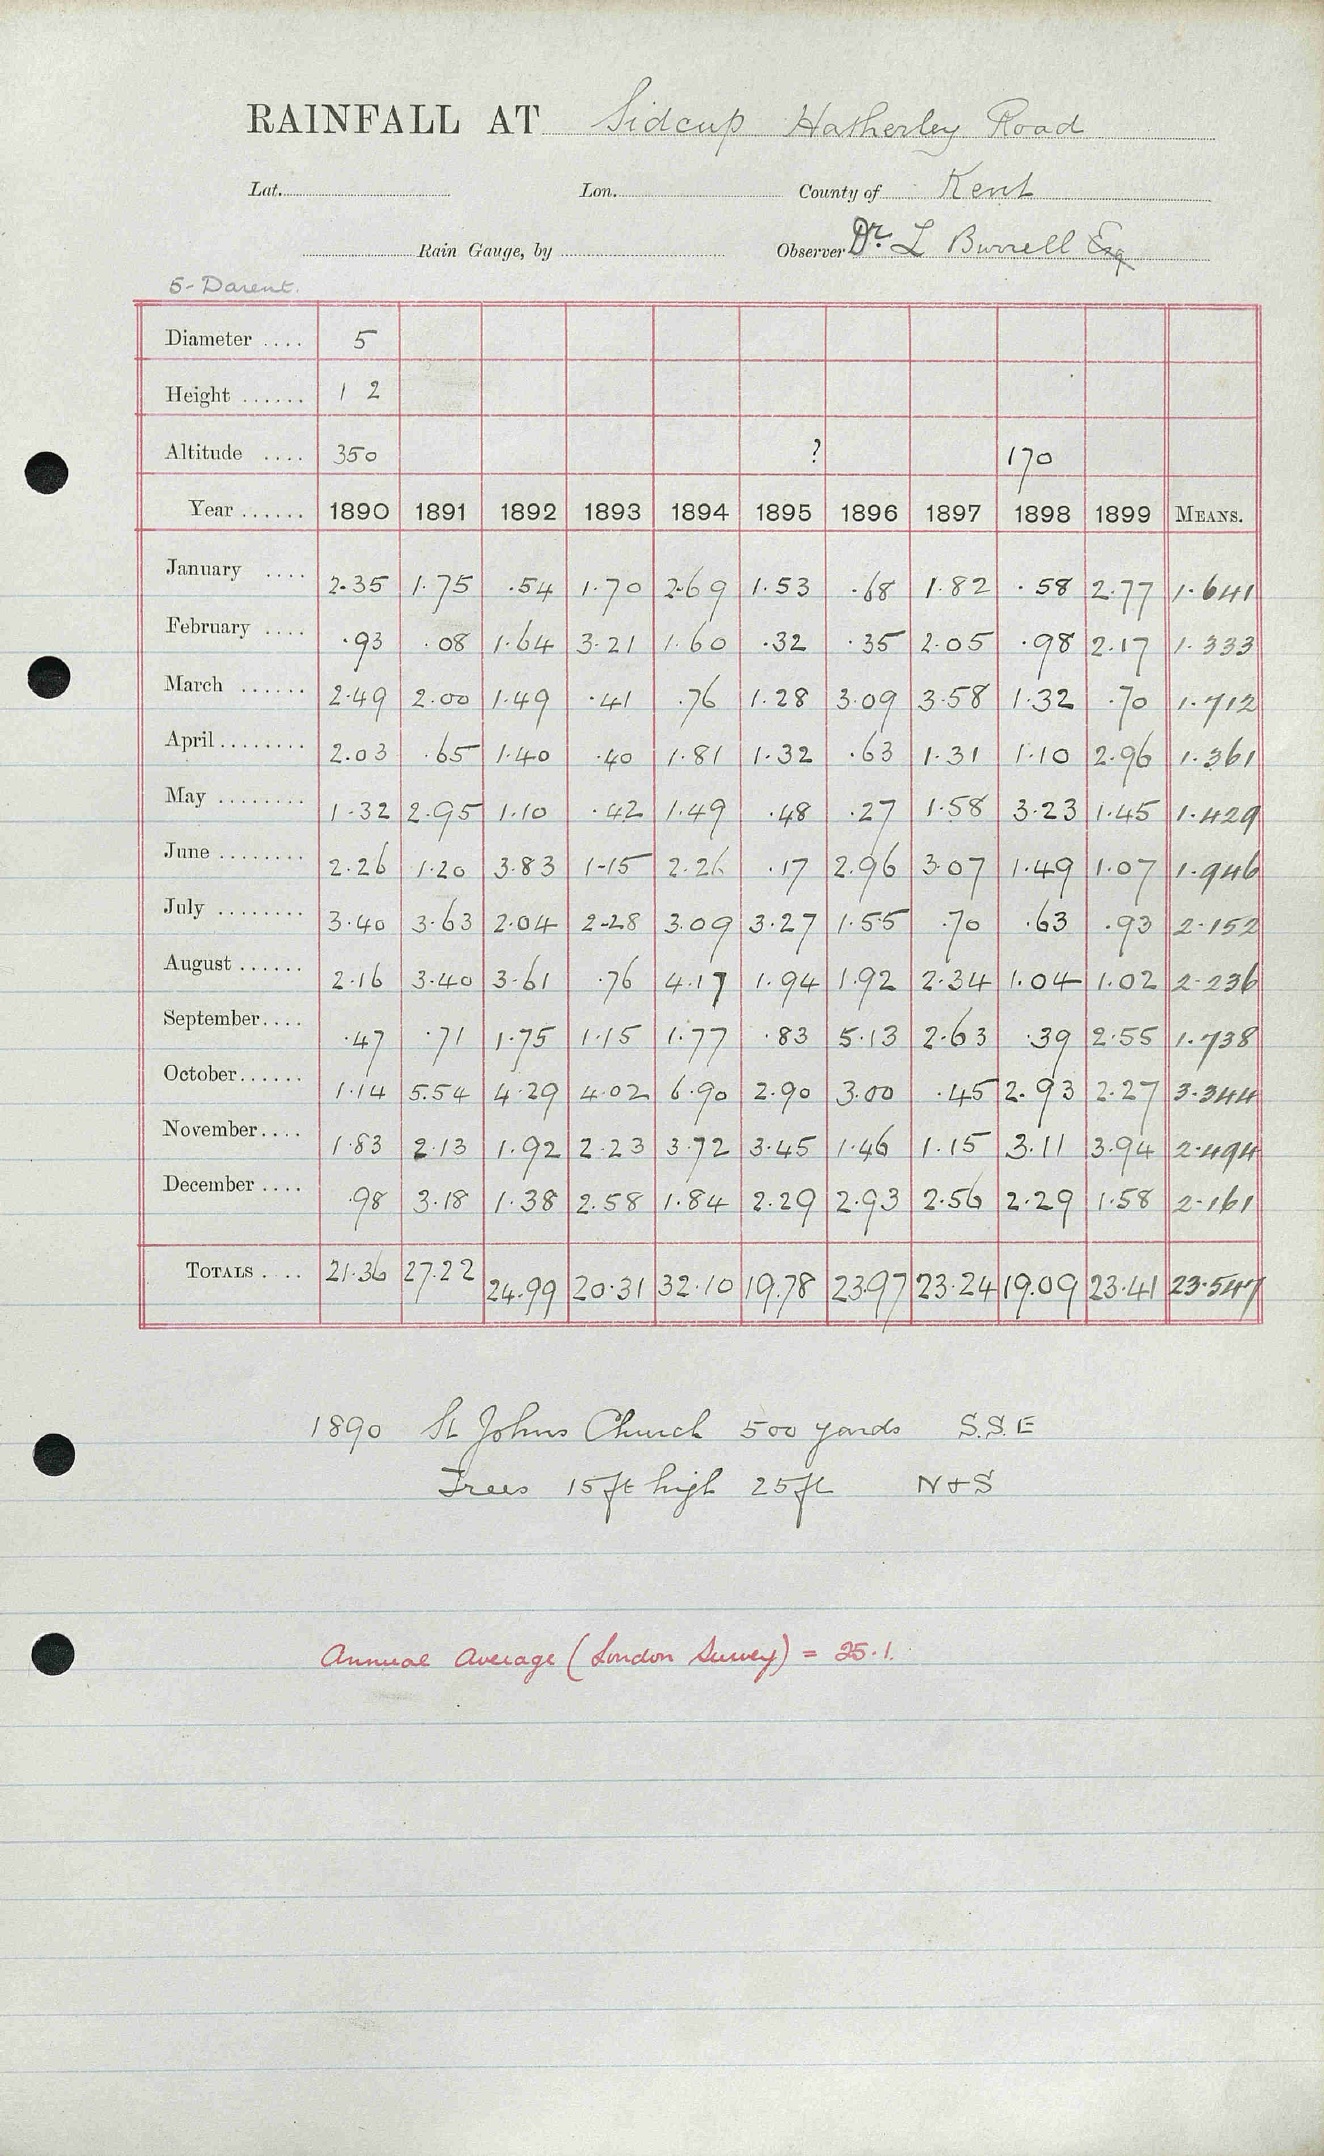 RAINFALL AT Sidcup Hatherley Road
Lat. Lon. County of Kent
Rain Gauge, by Observer Dr. L Burrell Esq
5-Darent.
Diameter .... 5
Height ...... 1 2
Altitude .... 350 ? 170
Year ...... 1890 1891 1892 1893 1894 1895 1896 1897 1898 1899 MEANS.
January .... 2.35 1.75 .54 1.70 2.69 1.53 .68 1.82 .58 2.77 1.641
February .... .93 .08 1.64 3.21 1.60 .32 .35 2.05 .98 2.17 1.333
March ...... 2.49 2.00 1.49 .41 .76 1.28 3.09 3.58 1.32 .70 1.712
April ........ 2.03 .65 1.40 .40 1.81 1.32 .63 1.31 1.10 2.96 1.361
May ........ 1.32 2.95 1.10 .42 1.49 .48 .27 1.58 3.23 1.45 1.429
June ........ 2.26 1.20 3.83 1.15 2.26 .17 2.96 3.07 1.49 1.07 1.946
July ........ 3.40 3.63 2.04 2.28 3.09 3.27 1.55 .70 .63 .93 2.152
August ...... 2.16 3.40 3.61 .76 4.17 1.94 1.92 2.34 1.04 1.02 2.236
September.... .47 .71 1.75 1.15 1.77 .83 5.13 2.63 .39 2.55 1.738
October...... 1.14 5.54 4.29 4.02 6.90 2.90 3.00 .45 2.93 2.27 3.344
November.... 1.83 2.13 1.92 2.23 3.72 3.45 1.46 1.15 3.11 3.94 2.494
December .... .98 3.18 1.38 2.58 1.84 2.29 2.93 2.56 2.29 1.58 2.161
TOTALS .... 21.36 27.22 24.99 20.31 32.10 19.78 23.97 23.24 19.09 23.41 23.547
1890 St Johns Church 500 yards S.S.E
Trees 15ft high 25ft N+S
Annual Average (London Survey) = 25.1.